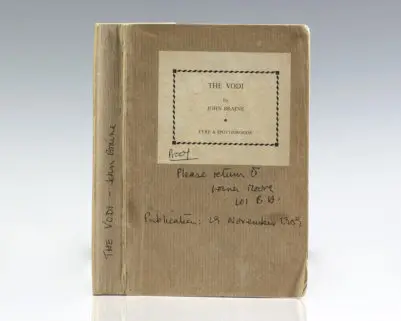 THE VODI - John Braine
THE VODI
by
JOHN BRAINE
EYRE & SPOTTISWOODE
Proof
Please return to
Publication: 19 November 1959